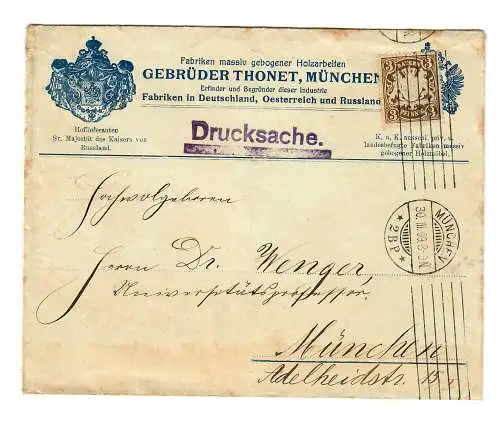 Fabriken massiv gebogener Holzarbeiten
GEBRÜDER THONET, MÜNCHEN
Erfinder und Begründer dieser Industrie
Fabriken in Deutschland, Oesterreich und Russland
Hoflieferanten
Sr. Majestät des Kaisers von
Russland.
Drucksache.
K. u. K. ausschl. priv. u.
landesbefugte Fabriken massiv
gebogener Holzmöbel.
3 BAYERN 3
3 PFENNIG 3
MÜNCHEN
30. III.
* 2 B.P. *
Hochwolgeboren
Herrn Dr. Wenger,
Universitätsprofessor.
München
Adelheidstr. 15